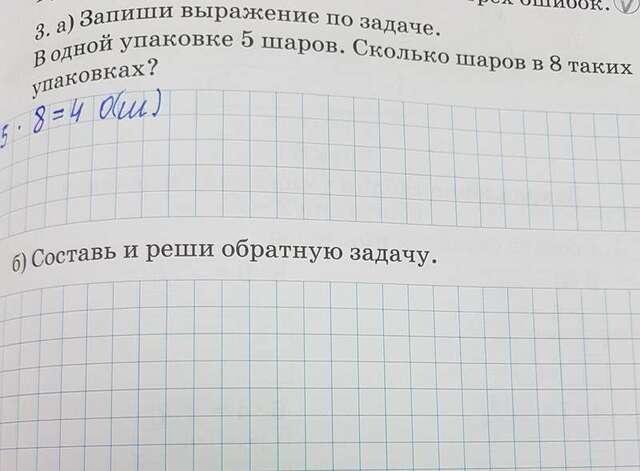 ошибок.
3. а) Запиши выражение по задаче.
В одной упаковке 5 шаров. Сколько шаров в 8 таких
упаковках?
5 · 8 = 4 0(ш)
б) Составь и реши обратную задачу.